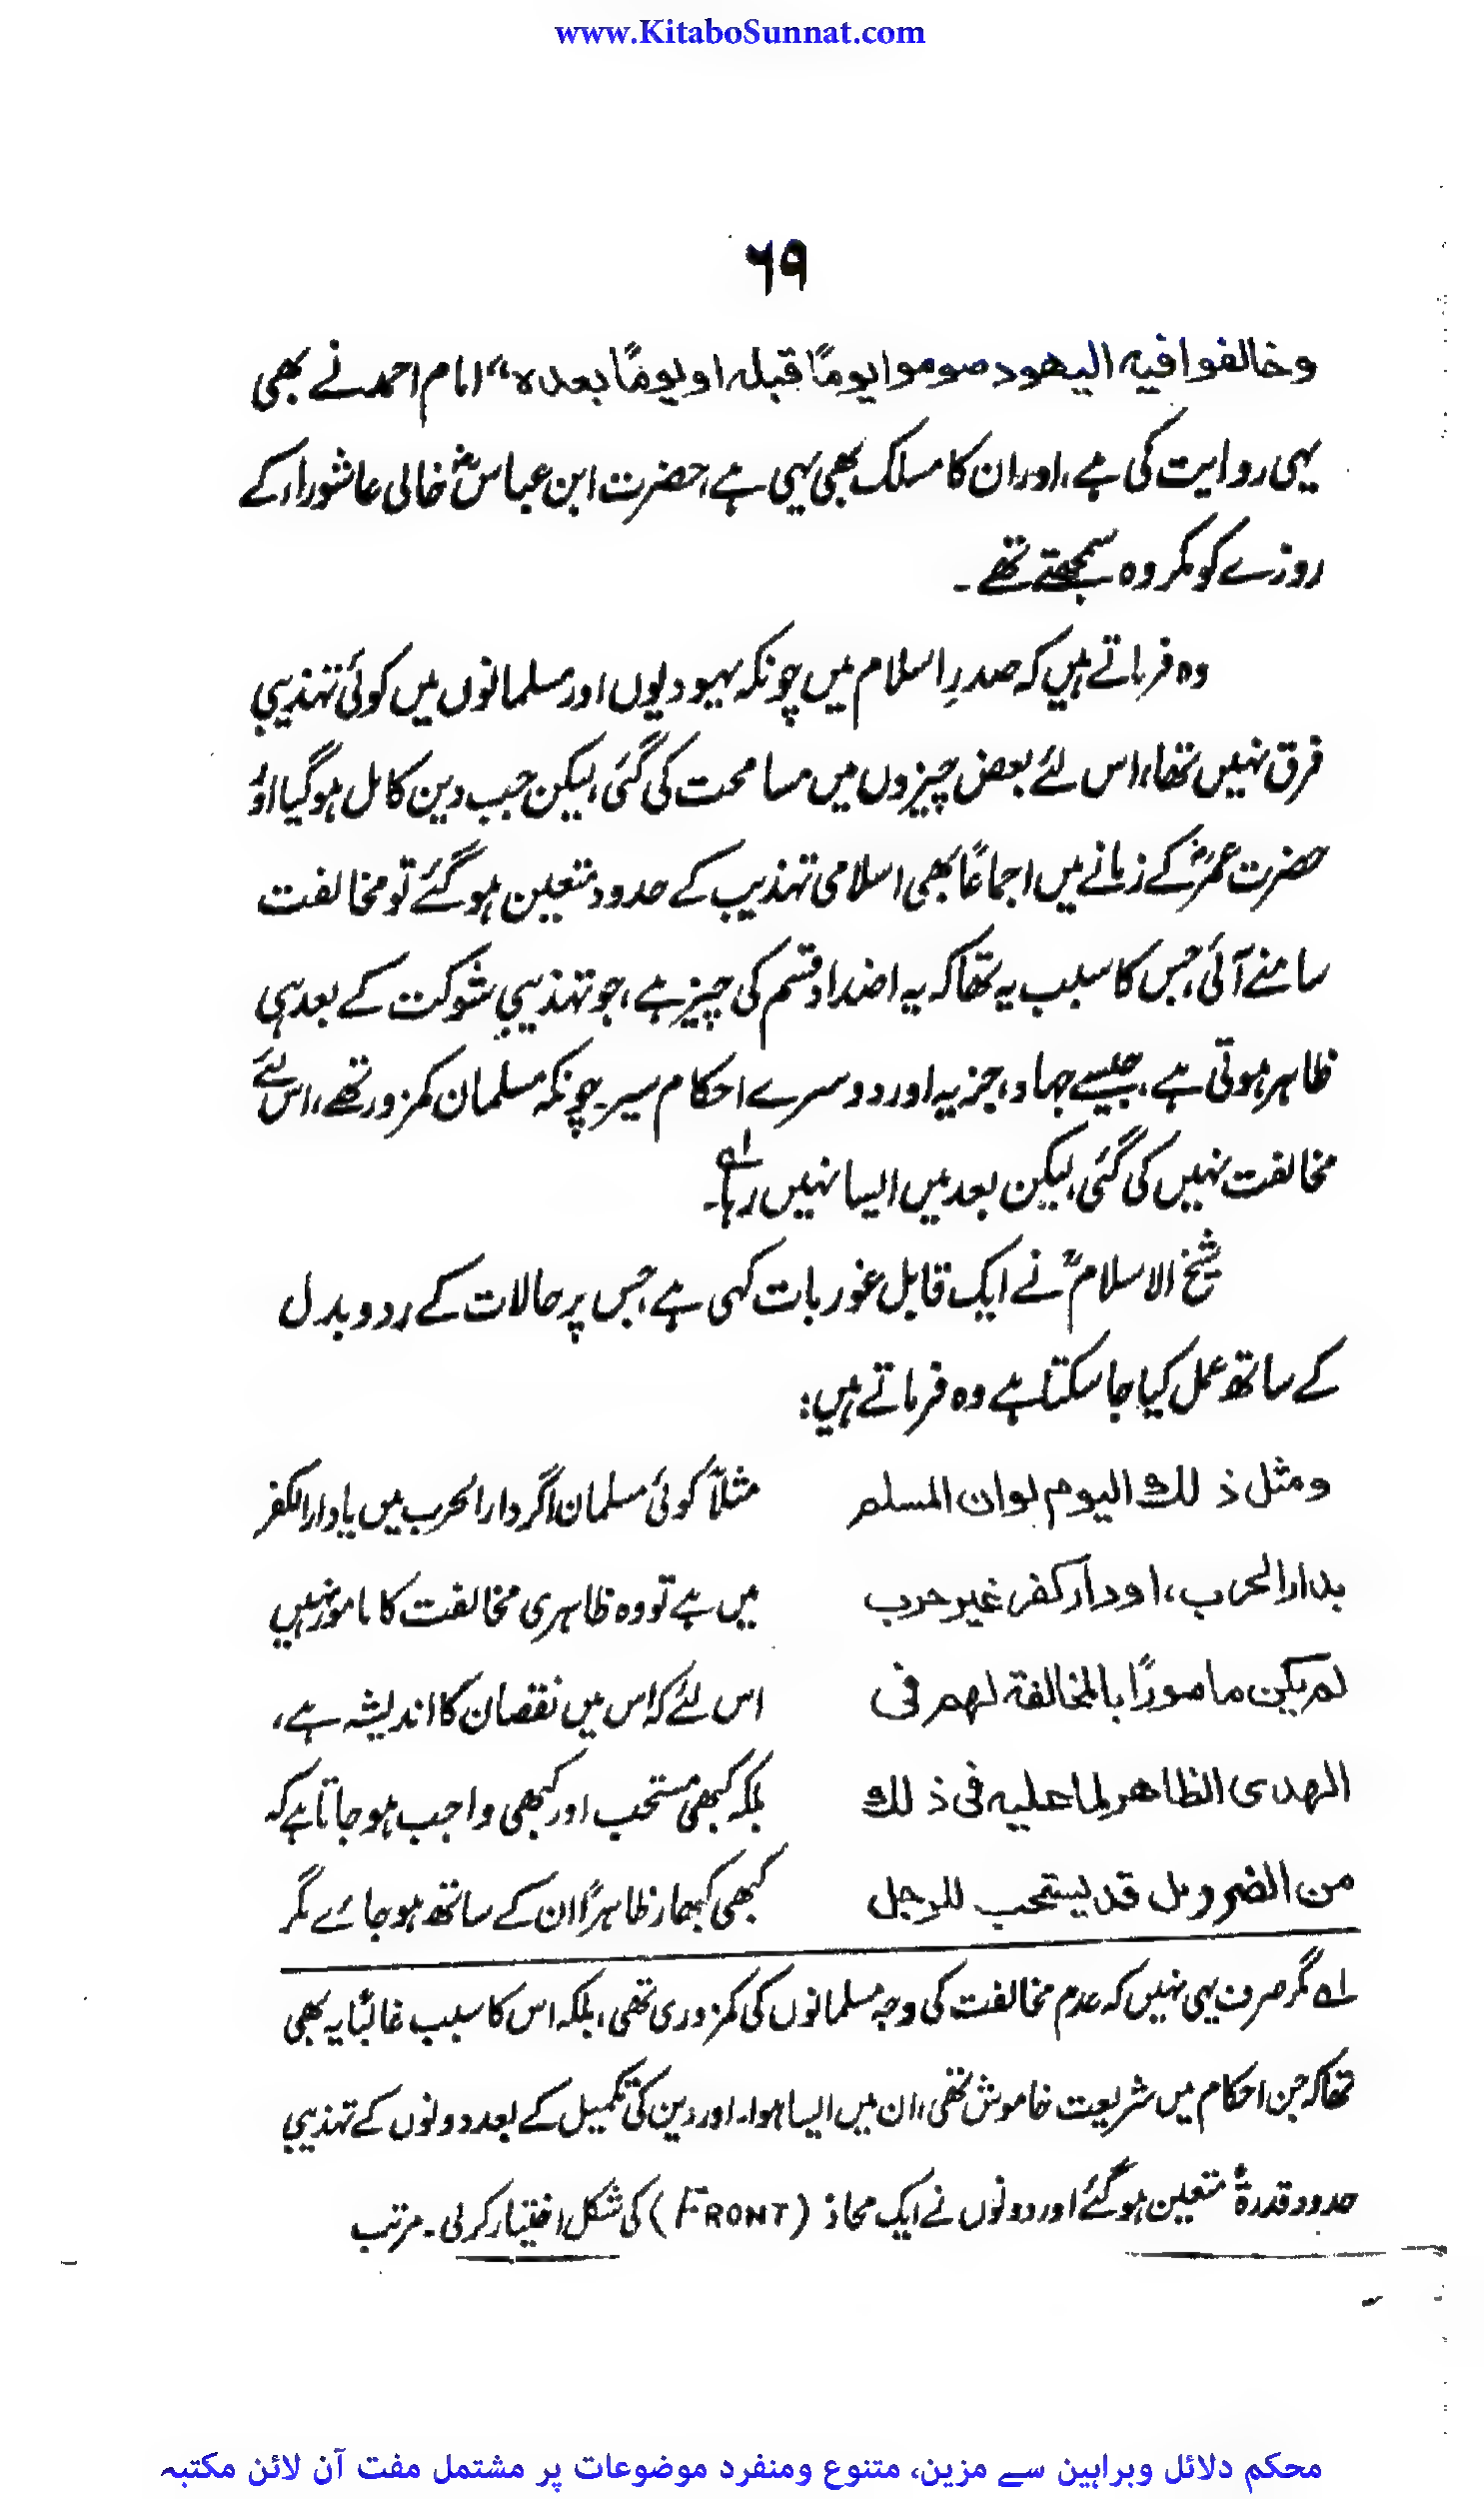 www.KitaboSunnat.com
۶۹
وخالفوا فیہ الیھود صوموا یومًا قبلہ او یومًا بعدہ“ امام احمد نے بھی
یہی روایت کی ہے، اور ان کا مسلک بھی یہی ہے، حضرت ابن عباسؓ خالی عاشوراء کے
روزے کو مکروہ سمجھتے تھے۔
وہ فرماتے ہیں کہ صدرِ اسلام میں چونکہ یہودیوں اور مسلمانوں میں کوئی تہذیبی
فرق نہیں تھا، اس لئے بعض چیزوں میں مسامحت کی گئی، لیکن جب دین کامل ہو گیا اور
حضرت عمرؓ کے زمانے میں اجماعًا بھی اسلامی تہذیب کے حدود متعین ہو گئے تو مخالفت
سامنے آئی، جس کا سبب یہ تھا کہ یہ اضداد قسم کی چیز ہے، جو تہذیبی شوکت کے بعد ہی
ظاہر ہوتی ہے، جیسے جہاد، جزیہ اور دوسرے احکام سیر۔ چونکہ مسلمان کمزور تھے، اس لئے
مخالفت نہیں کی گئی، لیکن بعد میں ایسا نہیں رہا۔ ؎۱
شیخ الاسلامؒ نے ایک قابل غور بات کہی ہے، جس پر حالات کے ردوبدل
کے ساتھ عمل کیا جا سکتا ہے وہ فرماتے ہیں:
ومثل ذلك الیوم لوان المسلم
بدار الحرب، اودار کفر غیر حرب
لم یکن مامورًا بالمخالفة لھم فی
الھدی الظاھر لما علیہ فی ذلك
من الضرر بل قد یستحب للرجل
مثلاً کوئی مسلمان اگر دار الحرب میں یا دار الکفر
میں ہے تو وہ ظاہری مخالفت کا مامور نہیں
اس لئے کہ اس میں نقصان کا اندیشہ ہے،
بلکہ کبھی مستحب اور کبھی واجب ہو جاتا ہے کہ
کبھی کبھار ظاہراً ان کے ساتھ ہو جائے مگر
؎۱ مگر صرف یہی نہیں کہ عدم مخالفت کی وجہ مسلمانوں کی کمزوری تھی، بلکہ اس کا سبب غالبًا یہ بھی
تھا کہ جن احکام میں شریعت خاموش تھی، ان میں ایسا ہوا۔ اور دین کی تکمیل کے بعد دونوں کے تہذیبی
حدود قدرۃً متعین ہو گئے اور دونوں نے ایک محاذ (FRONT) کی شکل اختیار کر لی۔ مرتب
محکم دلائل وبراہین سے مزین، متنوع ومنفرد موضوعات پر مشتمل مفت آن لائن مکتبہ